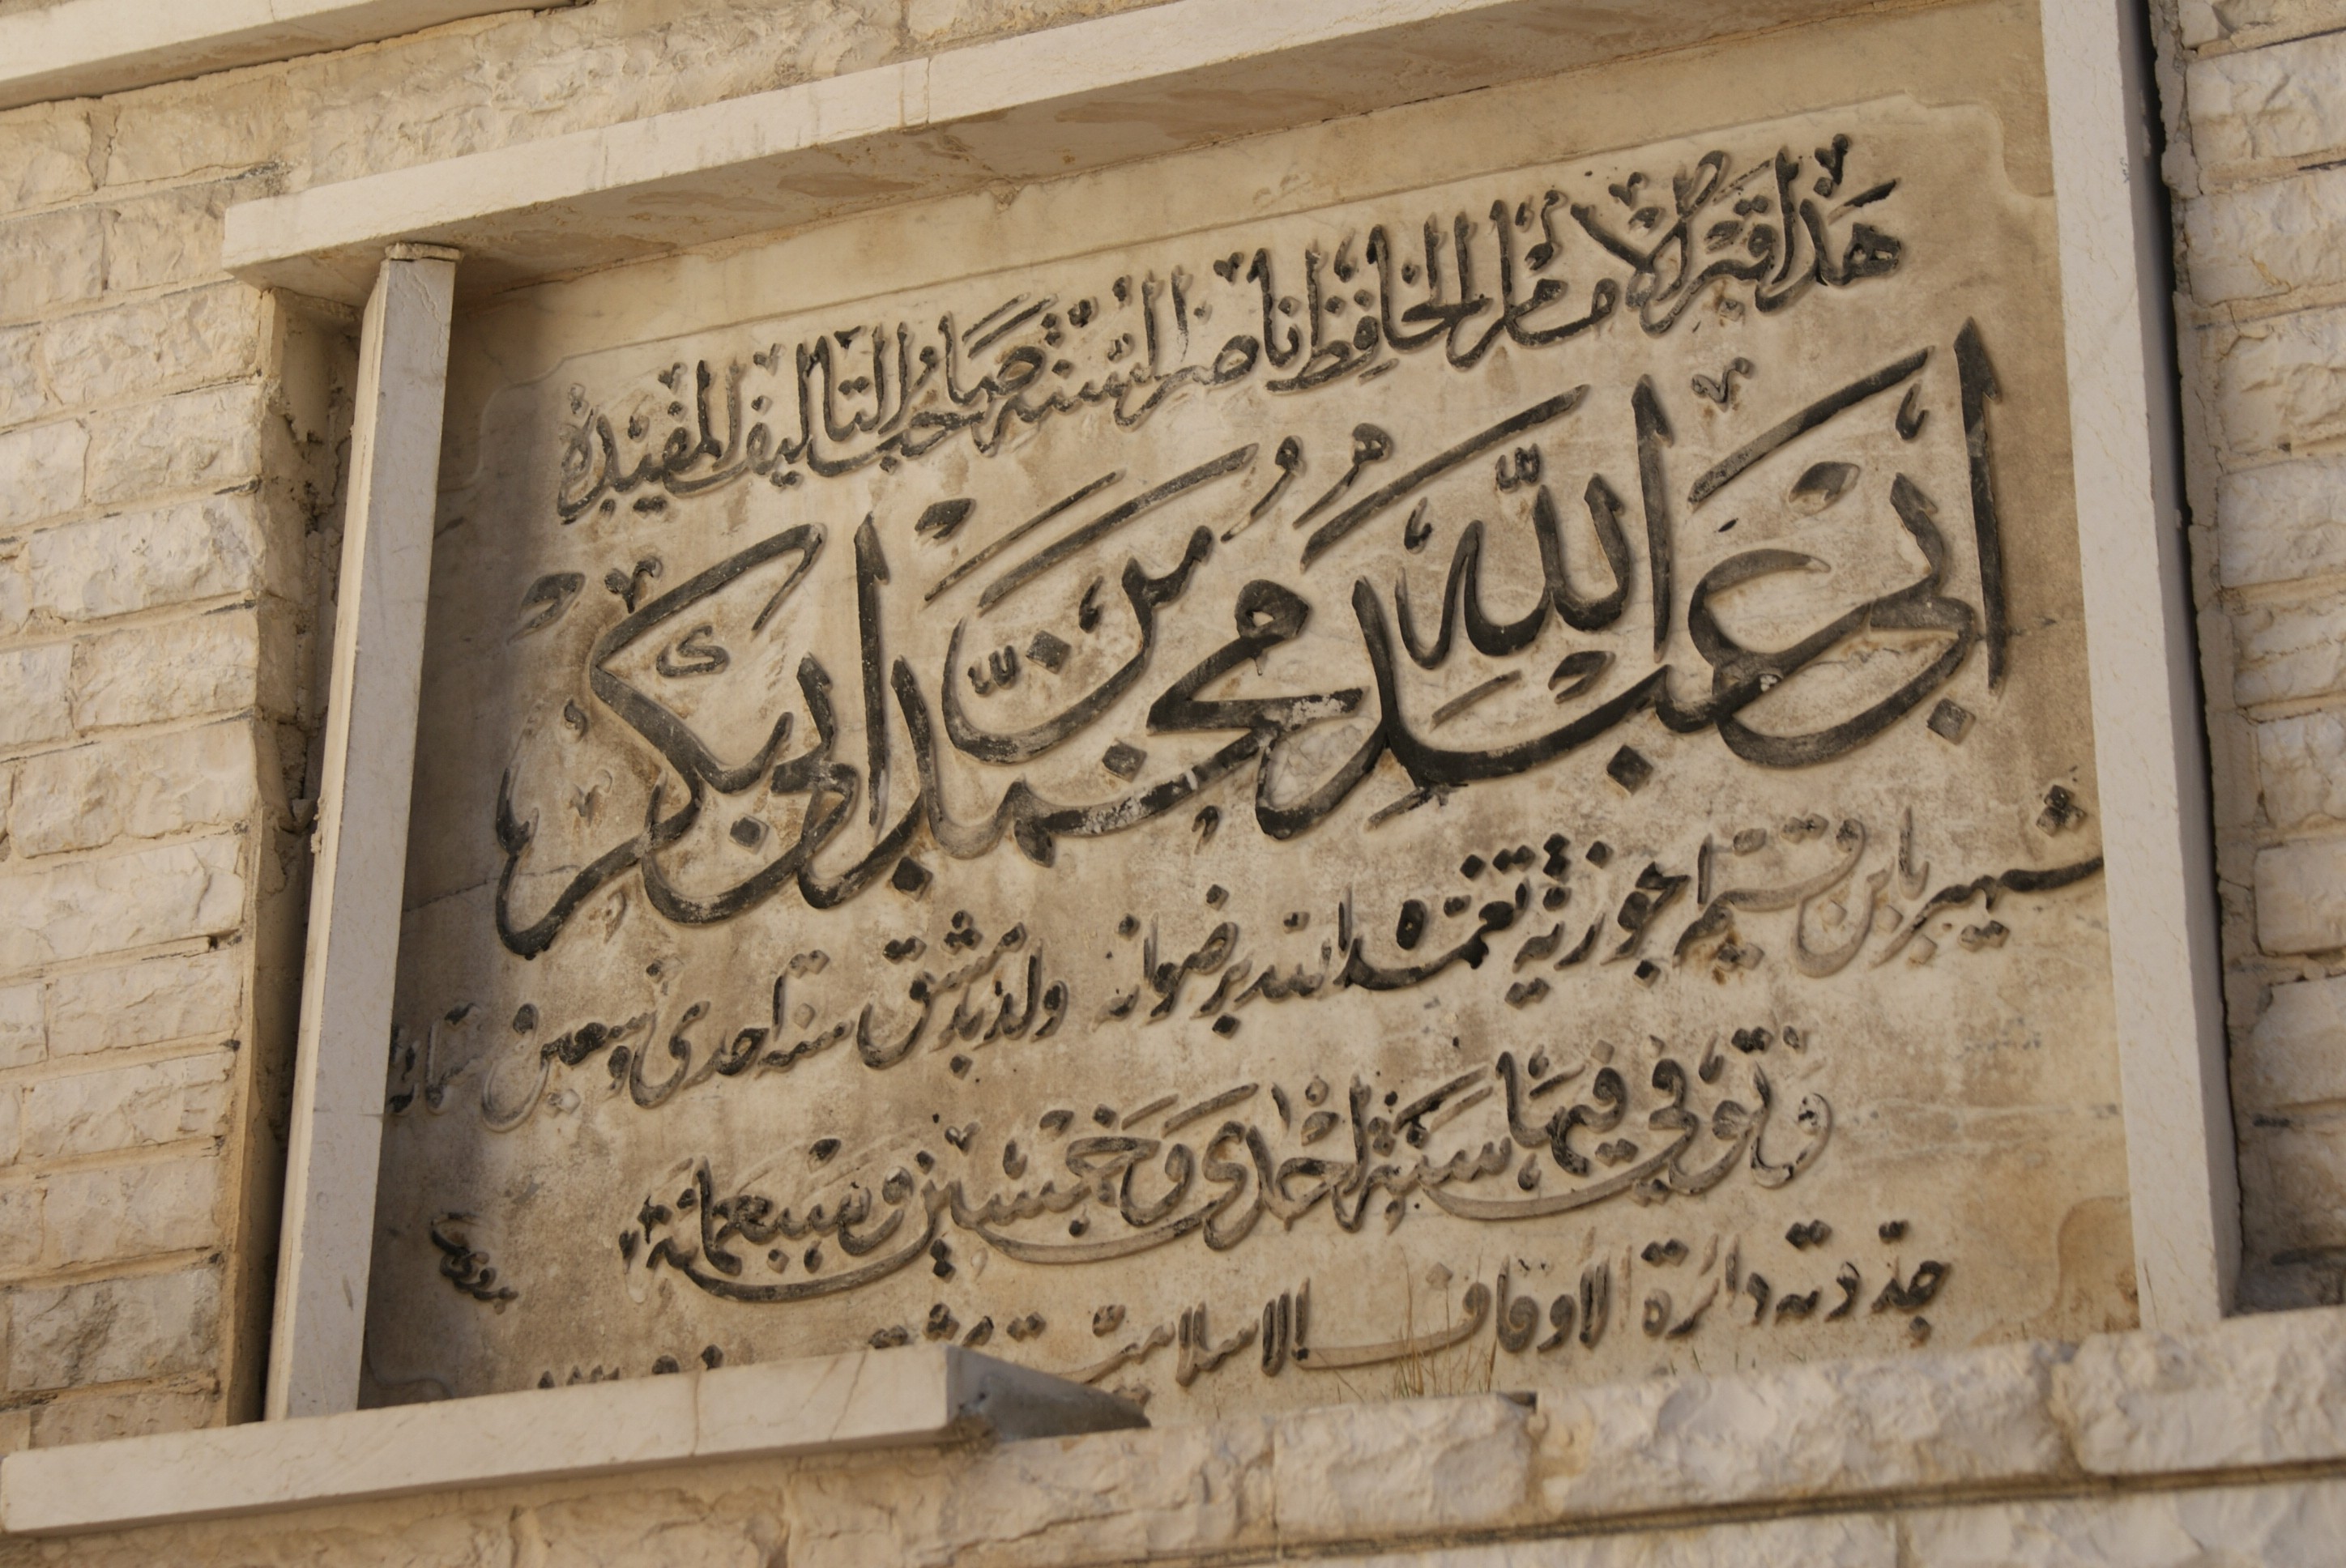 هذا قبر الامام الحافظ ناصر السنة صاحب التآليف المفيدة
ابي عبد الله شمس الدين محمد بن ابي بكر
شهير بابن قيم الجوزية تغمده الله برضوانه ولد بدمشق سنة احدى وتسعين وستمائة
وتوفي فيها سنة احدى وخمسين وسبعمائة
بدوي
جددته دائرة الاوقاف الاسلامية بدمشق